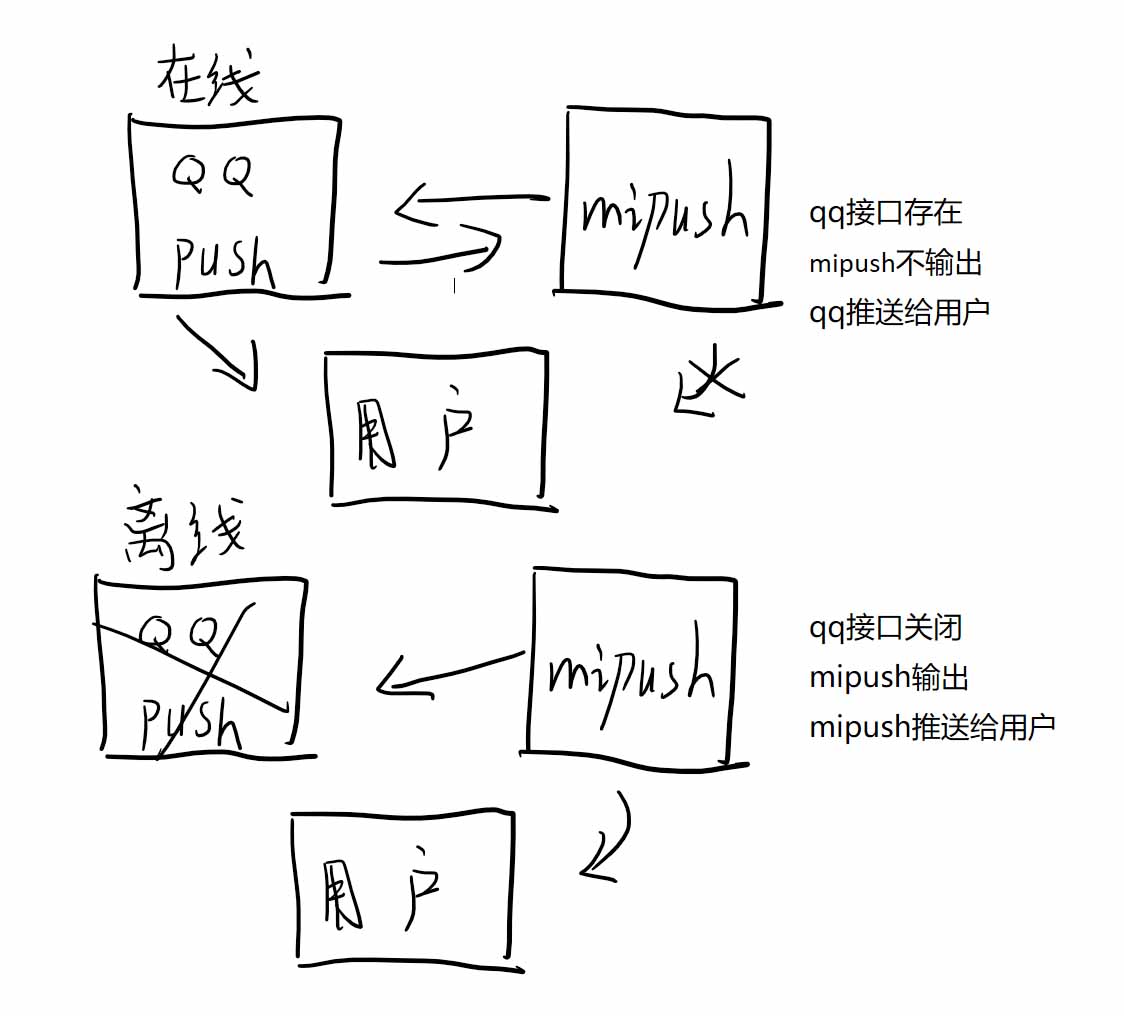 在线
QQ
push
mipush
qq接口存在
mipush不输出
qq推送给用户
用户
离线
QQ
push
mipush
qq接口关闭
mipush输出
mipush推送给用户
用户